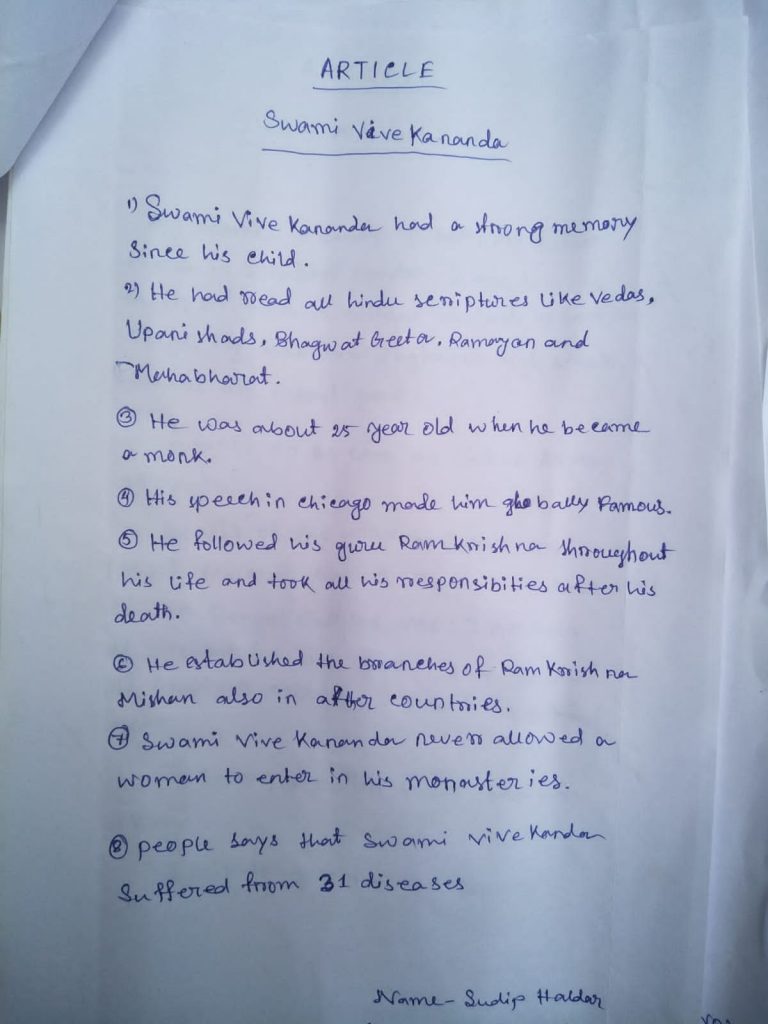 ARTICLE
Swami Vivekananda
1) Swami Vivekananda had a strong memory
Since his child.
2) He had read all hindu scriptures like vedas,
Upanishads, Bhagwat Geeta, Ramayan and
Mahabharat.
③ He was about 25 year old when he became
a monk.
④ His speech in chicago made him globally Famous.
⑤ He followed his guru Ramkrishna throughout
his life and took all his responsibities after his
death.
⑥ He established the branches of Ramkrishna
Mishan also in other countries.
⑦ Swami Vivekananda never allowed a
woman to enter in his monasteries.
⑧ people says that Swami vivekanda
Suffered from 31 diseases
Name- Sudip Haldar